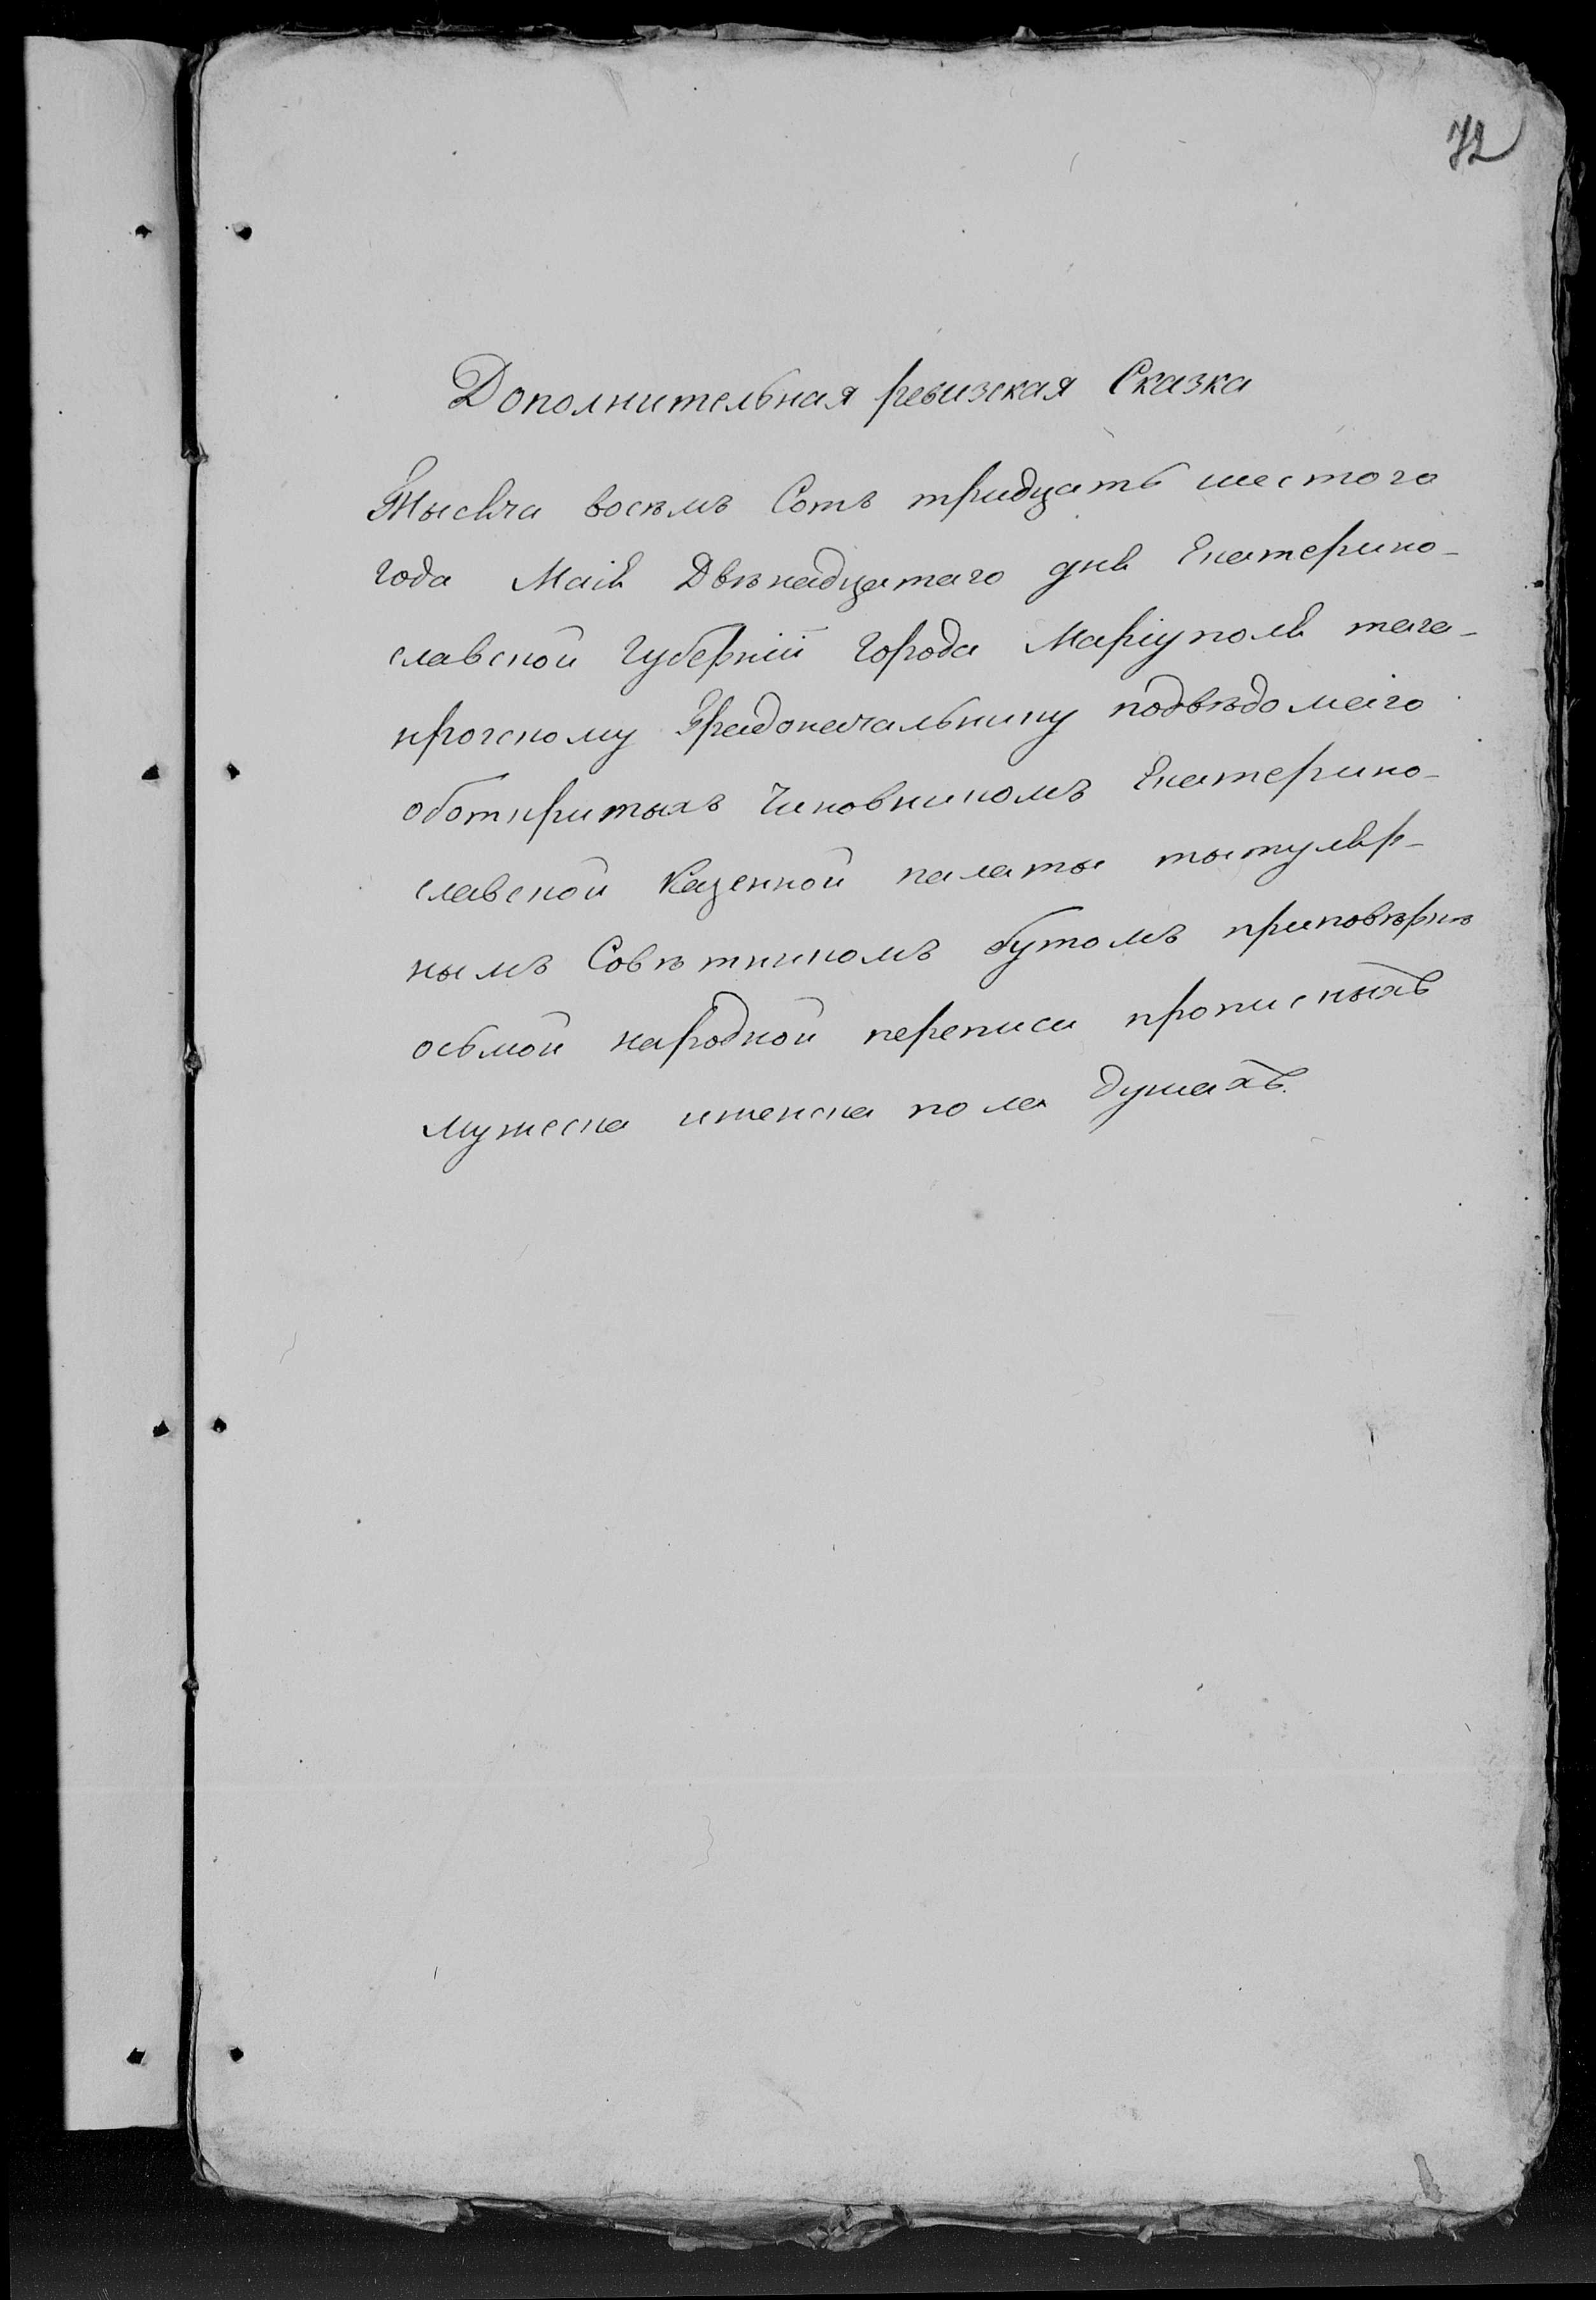 72
Дополнительная ревизская Сказка
Тысяча восемъ Сотъ тридцать шестого
года Маія Двѣнадцатаго дня Екатерино-
славской губерніи города Маріуполя тага-
нрогскому Градоначальнику подвѣдомаго
оботкритыхъ Чиновникомъ Екатерино-
славской Казенной палаты тытуляр-
нымъ Совѣтникомъ Бутомъ приповѣркѣ
осьмой народной переписи прописныхъ
мужеска иженска пола душахъ.